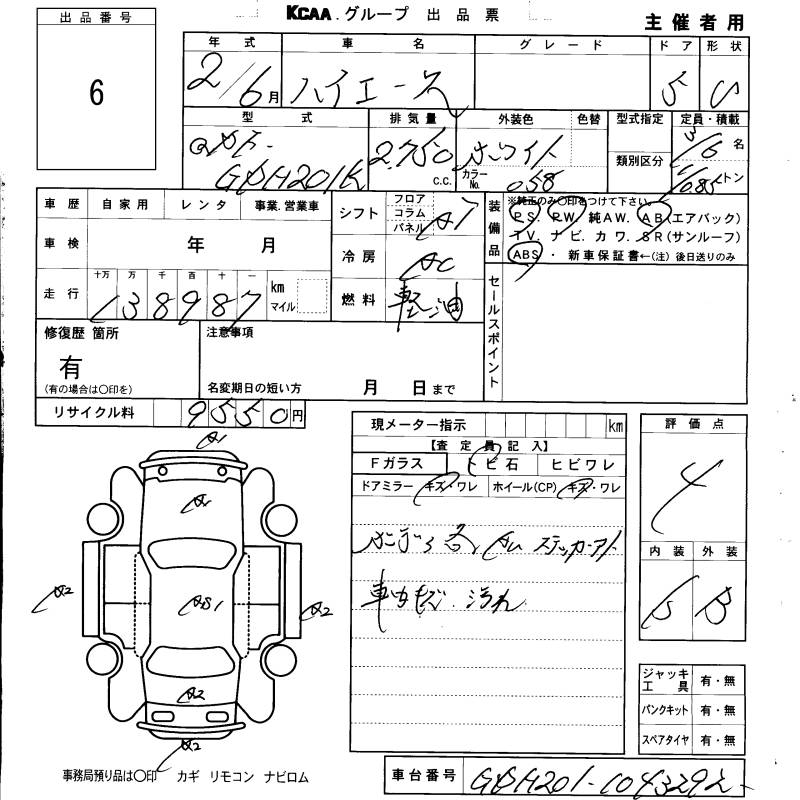 KCAA.グループ 出品票
主催者用
出品番号
6
年式 車名 グレード ドア 形状
2/6月 ハイエース 5
型式 排気量 外装色 色替 型式指定 定員・積載
GDH201K 2.750 c.c. ホワイト カラーNo. 058 類別区分 3/6名 トン
車歴 自家用 レンタ 事業.営業車
シフト フロア コラム パネル AT
装備品 ※純正のみ〇印をつけて下さい。
P.S. P.W. 純A.W. A.B.(エアバック)
T.V. ナビ. カワ. S.R(サンルーフ)
ABS ・ 新車保証書←(注) 後日送りのみ
車検 年 月
冷房 AC
走行 十万 万 千 百 十 一
138987 km マイル
燃料 軽油
セールスポイント
修復歴 箇所
有
(有の場合は〇印を)
注意事項
名変期日の短い方 月 日まで
リサイクル料 9550円
現メーター指示 km
【査定員記入】
Fガラス トビ石 ヒビワレ
ドアミラー キズ・ワレ ホイール(CP) キズ・ワレ
ステッカーアト
車内キズ・汚れ
評価点
4
内装 外装
B B
A1
A2
A2
A2
A2
ジャッキ 工具 有・無
パンクキット 有・無
スペアタイヤ 有・無
事務局預り品は〇印 カギ リモコン ナビロム
車台番号 GDH201-1043292